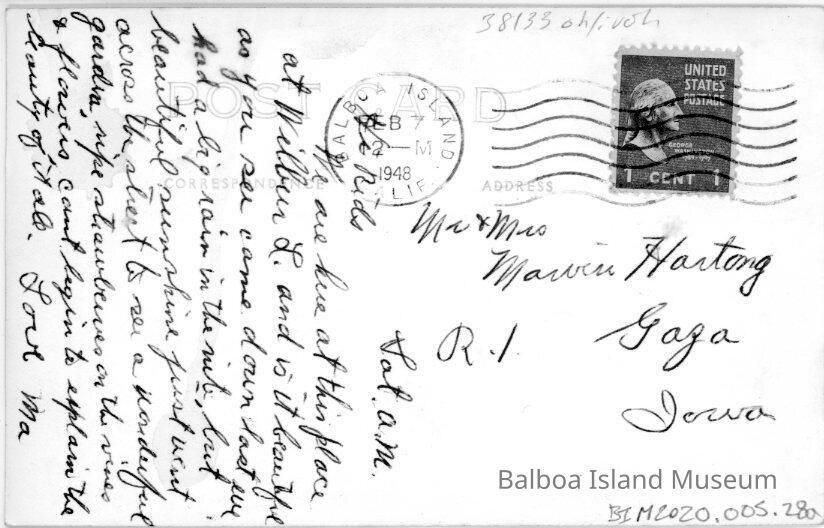 38133 oh/ivoh
POST CARD
CORRESPONDENCE
ADDRESS
BALBOA ISLAND
FEB 7
2 — M
1948
CALIF.
UNITED
STATES
POSTAGE
GEORGE
WASHINGTON
1 CENT 1
Sat. a.m.
Kids
We are here at this place
at Wilbur L. and is it beautiful
as you see came down last eve
had a big rain in the nite, but
beautiful sunshine just went
across the street to see a wonderful
garden, ripe strawberries on the vines
& flowers cant begin to explain the
beauty of it all. Love Ma
Mr & Mrs
Marvin Hartong
R. 1. Gaza
Iowa
Balboa Island Museum
BIM2020.005.28a